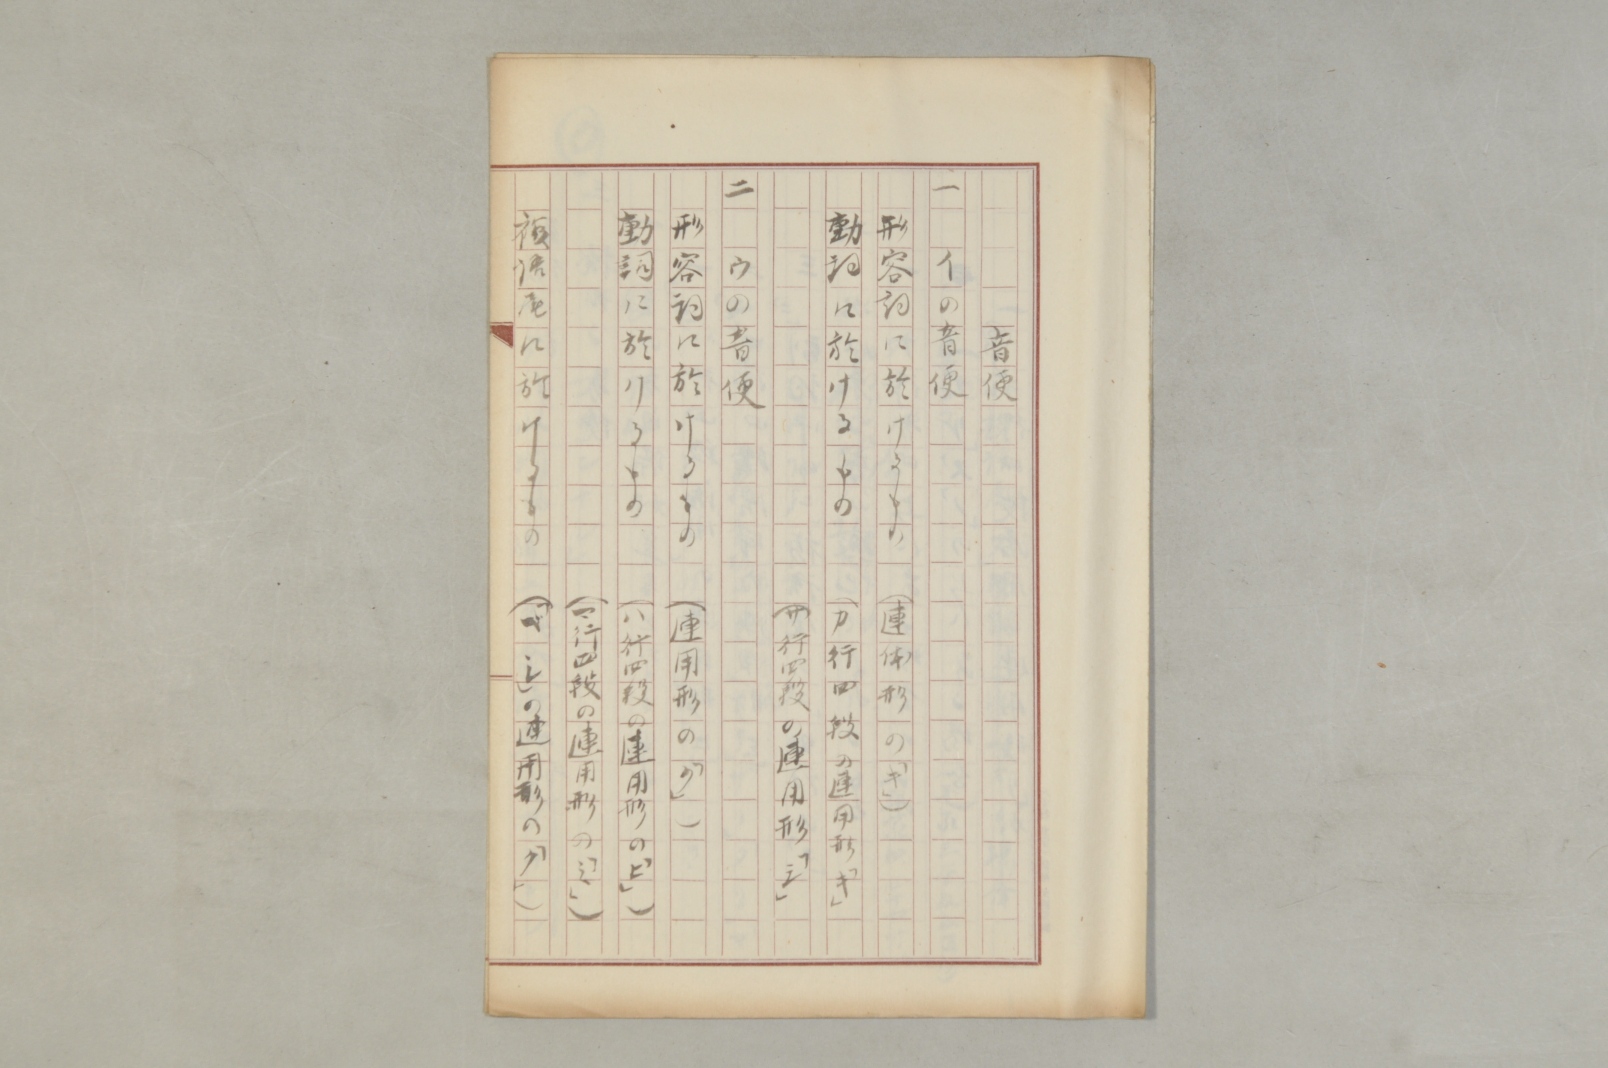 音便
一　イの音便
形容詞に於けるもの　（連体形の「キ」）
動詞に於けるもの　（カ行四段の連用形「キ」
（サ行四段の連用形「シ」
二　ウの音便
形容詞に於けるもの　（連用形の「ク」）
動詞に於けるもの　（ハ行四段の連用形の「ヒ」）
（マ行四段の連用形の「ミ」）
に於けるもの　の連用形の「ク」）